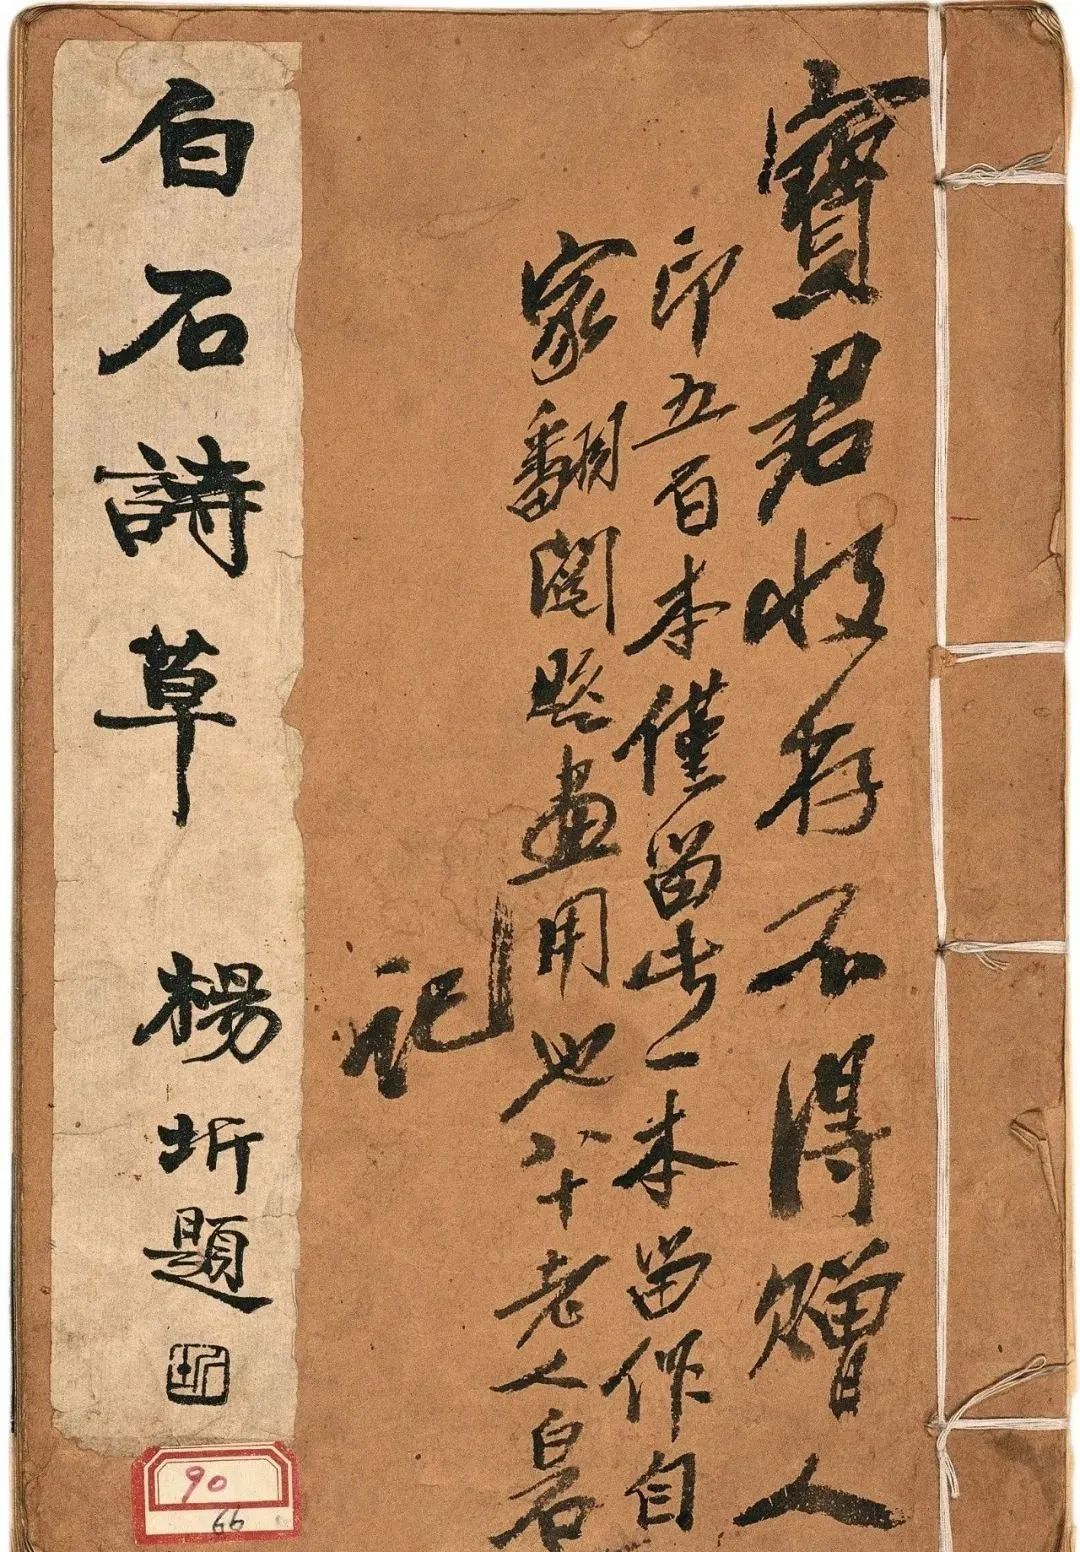 寶君收存不得贈人
印五百本僅留此一本留作自
家翻閱題畫用也八十老人白石
記
白石詩草
楊圻題
圻
90
66